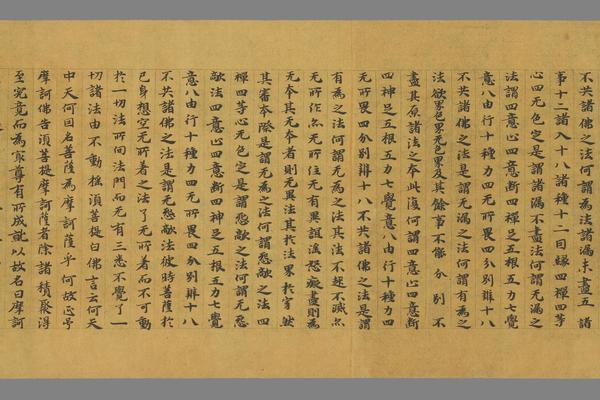 不共諸佛之法何謂為法諸漏未盡五諸
事十二諸入十八諸種十二因緣四禪四等
心四无色定是謂諸漏不盡法何謂无漏之
法謂四意心四意斷四禪足五根五力七覺
意八由行十種力四无所畏四分別辯十八
不共諸佛之法是謂无漏之法何謂有為之
法欲界色界无色界及其餘事不能分別不
盡其原諸法之本此復何謂四意心四意斷
四神足五根五力七覺意八由行十種力四
无所畏四分別辯十八不共諸佛之法是謂
有為之法何謂无為之法其法不起不滅亦
无所作亦无所住无有異誼婬恚癡盡則為
无本其无本者則无異法其於法界於寂然
其審本際是謂无為之法何謂怨敵之法四
禪四等心无色定是謂怨敵之法何謂无怨
敵法四意心四意斷四神足五根五力七覺
意八由行十種力四无所畏四分別辯十八
不共諸佛之法是謂无怨敵法彼時菩薩於
己身想空无所著之法了无所著而不可動
於一切法所問法門而无有三悉不覺了一
切諸法由不動搖須菩提白佛言云何天
中天何因名菩薩為摩訶薩乎何故正号
摩訶佛告須菩提摩訶薩者除諸積聚得
至究竟而為冣尊有所成就以故名曰摩訶